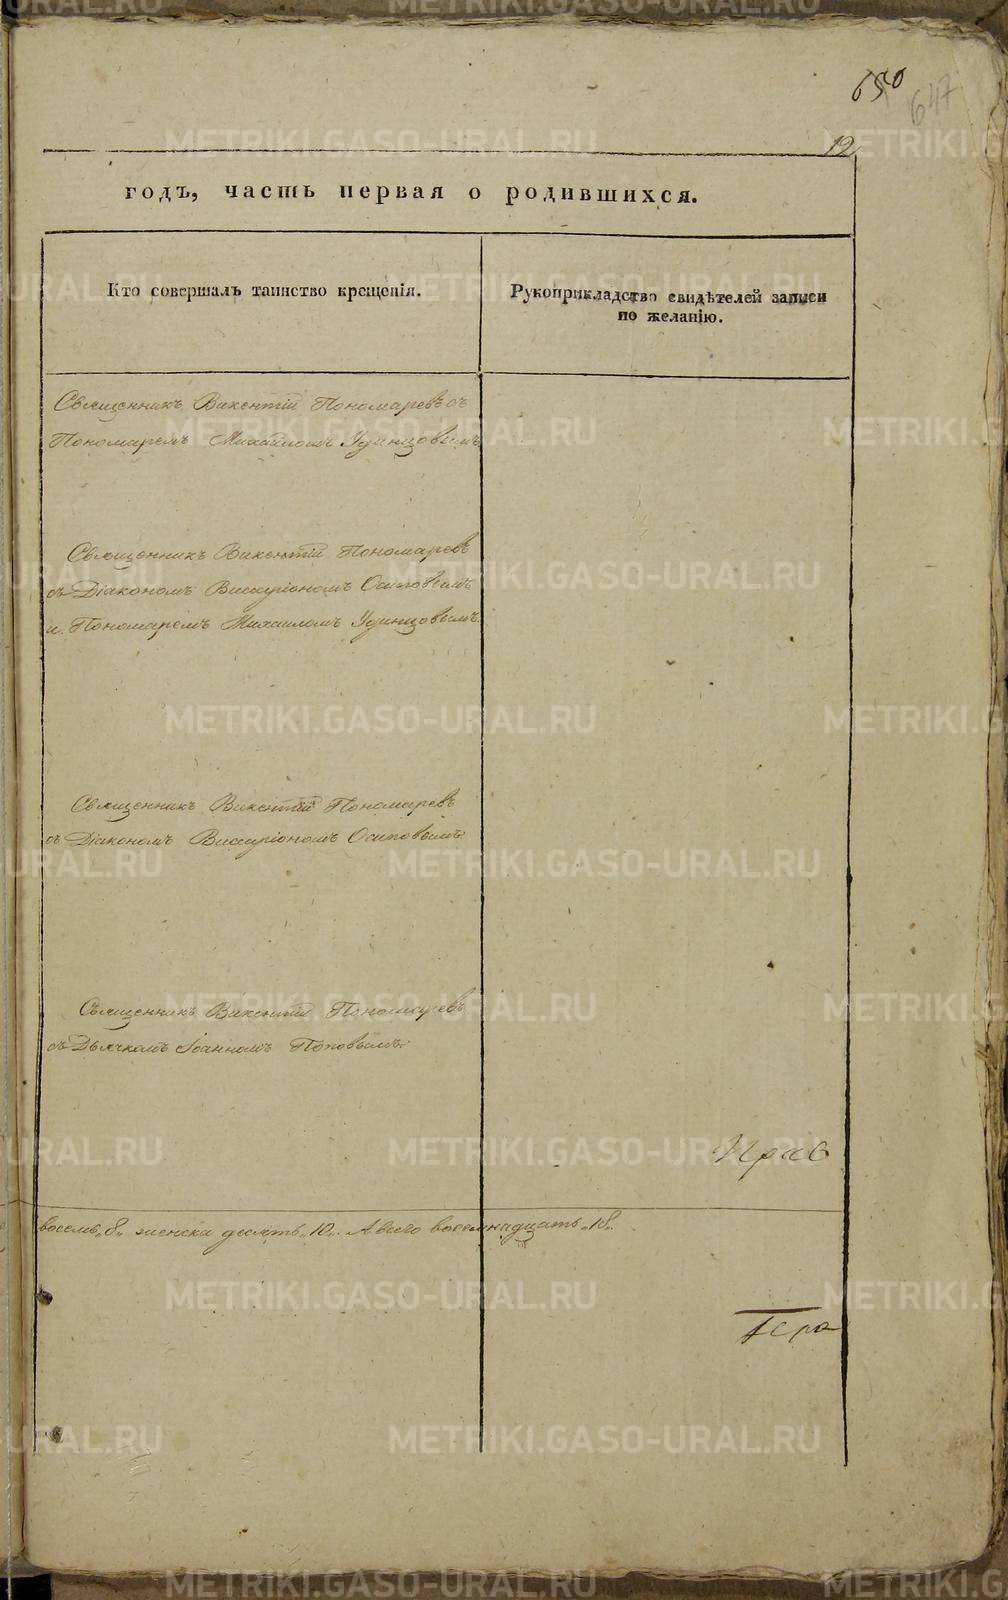 650
647
12
годъ, часть первая о родившихся.
Кто совершалъ таинство крещенія.
Рукоприкладство свидѣтелей записи
по желанію.
Священникъ Викентій Пономаревъ съ
Пономаремъ Михаиломъ Удинцовымъ
Священникъ Викентій Пономаревъ
съ Діакономъ Виссаріономъ Осиповымъ
и Пономаремъ Михаиломъ Удинцовымъ.
Священникъ Викентій Пономаревъ
съ Діакономъ Виссаріономъ Осиповымъ.
Священникъ Викентій Пономаревъ
съ Дьячкомъ Іоанномъ Поповымъ.
восемь „8„ женска десять „10„. А всего восемнадцать „18„.
METRIKI.GASO-URAL.RU